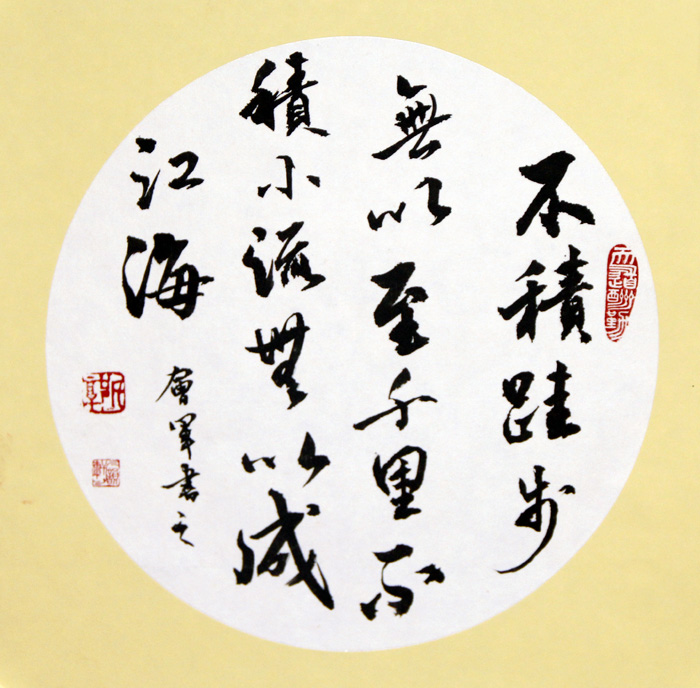 天道酬勤
不積跬步
無以至千里不
積小流無以成
江海
會軍書之